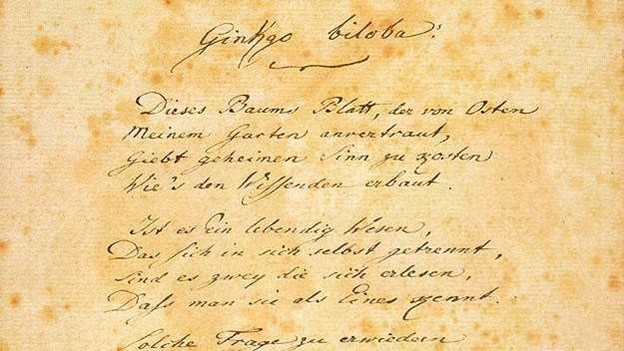 Ginkgo biloba.
Dieses Baums Blatt, der von Osten
Meinem Garten anvertraut,
Giebt geheimen Sinn zu kosten
Wie's den Wissenden erbaut.
Ist es Ein lebendig Wesen,
Das sich in sich selbst getrennt,
Sind es zwey die sich erlesen,
Daſs man sie als Eines kennt.
Solche Frage zu erwiedern